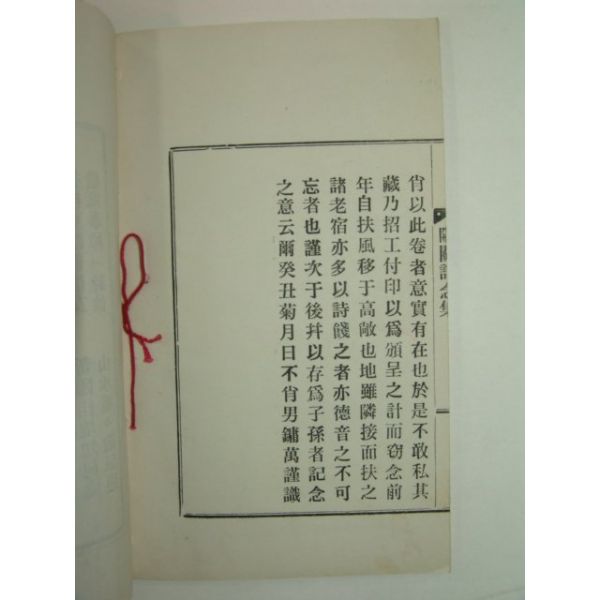 肯以此卷者意實有在也於是不敢私其
藏乃招工付印以爲頒呈之計而窃念前
年自扶風移于高敞也地雖隣接而扶之
諸老宿亦多以詩餞之者亦德音之不可
忘者也謹次于後幷以存爲子孫者記念
之意云爾癸丑菊月日不肖男鏞萬謹識